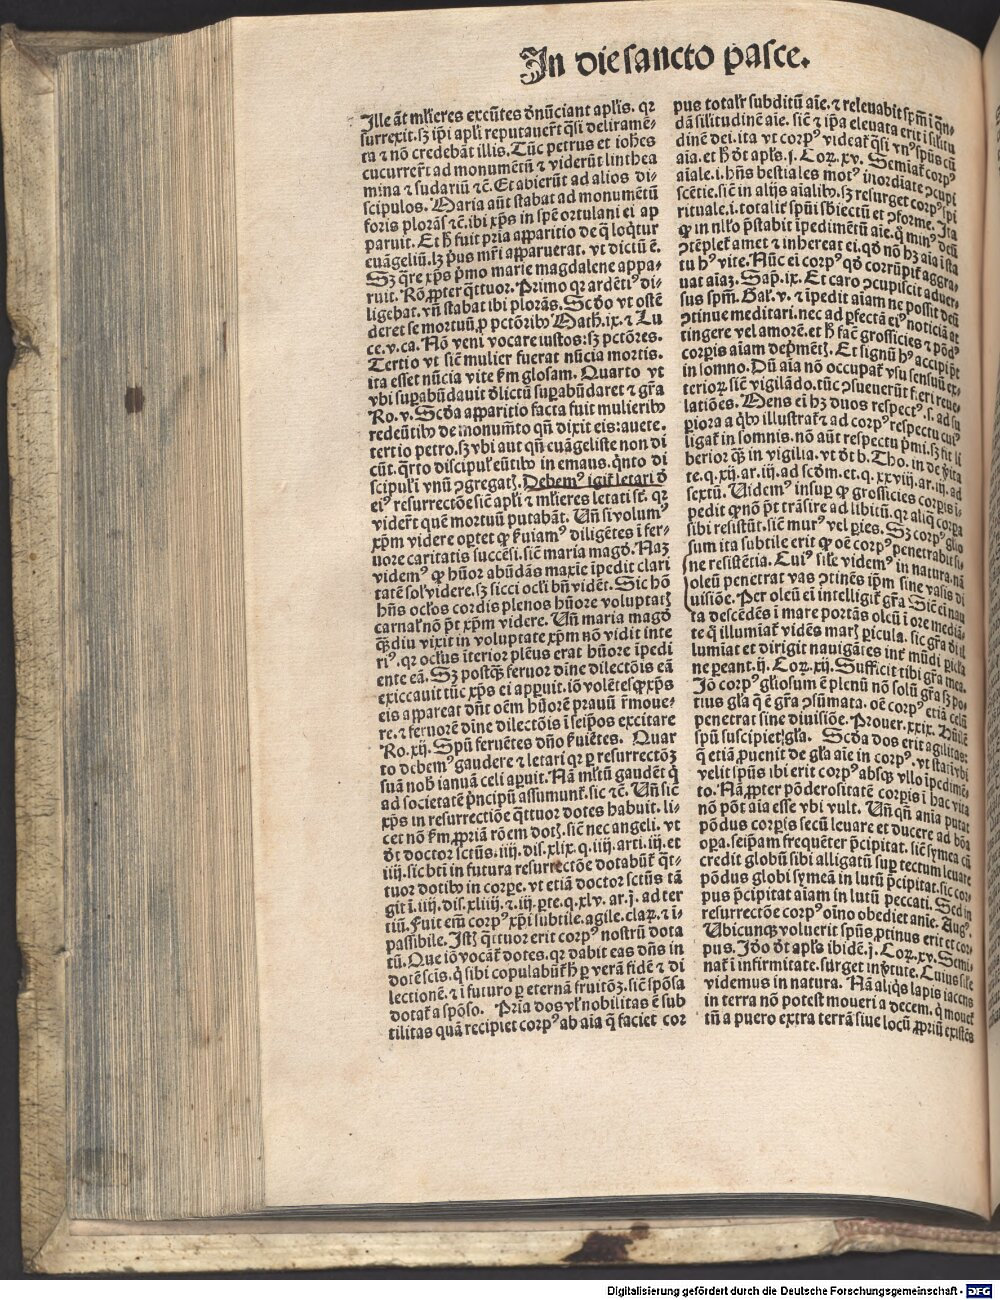 In die sancto pasce.
Ille āt ml̄ieres exeūtes ōnūciant apl̄is. qꝛ
surrexit. sꝫ ip̄i apl̄i reputauerūt q̄si deliramē-
ta ⁊ nō credebāt illis. Tūc petrus et ioh̄es
cucurrer̄t ad monumētū ⁊ viderūt linthea
mina ⁊ sudariū ⁊c̄. Et abierūt ad alios di-
scipulos. Maria aūt stabat ad monumētū
foris plorās ⁊c̄. ibi xp̄s in spē ortulani ei ap
paruit. Et h̄ fuit pria apparitio de q̄ loqtur
euāgeliū. lꝫ pꝰus mr̄i apparuerat. vt dictū ē.
Sꝫ q̄re xp̄s pͥmo marie magdalene appa-
ruit. Rō. ꝓpter q̄ttuor. Primo qꝛ ardētiꝰ di-
ligebat. vn̄ stabat ibi plorās. Scd̄o vt ostē
deret se mortuū ꝓ pctōribꝰ Math. ix. ⁊ Lu
ce. v. ca. Nō veni vocare iustos: sꝫ pctōres.
Tertio vt sic̄ mulier fuerat nūcia mortis.
ita esset nūcia vite ẜm glosam. Quarto vt
vbi suꝑabūdauit dl̄ictū suꝑabūdaret ⁊ gr̄a
Ro. v. Scd̄a apparitio facta fuit mulieribꝰ
redeūtibꝰ de monumēto qn̄ dixit eis: auete.
tertio petro. sꝫ vbi aut qn̄ euāgeliste non di
cūt. q̄rto discipul̄ eūtibꝰ in emaus. q̄nto di
scipul̄ i vnū ꝯgregatꝭ. Debemꝰ igit̄ letari d̄
eiꝰ resurrectōe sic̄ apl̄i ⁊ ml̄ieres letati st̄. qꝛ
vider̄t quē mortuū putabāt. Un̄ si volumꝰ
xp̄m videre oꝑtet ꝙ ẜuiamꝰ diligētes i fer-
uore caritatis succēsi. sic̄ maria magd̄. Naꝫ
videmꝰ ꝙ hūor abūdās maxīe īpedit clari
tatē sol̄ videre. sꝫ sicci ocl̄i bn̄ vidēt. Sic hō
hn̄s ocl̄os cordis plenos hūore voluptatꝭ
carnal̄ nō pt̄ xp̄m videre. Un̄ maria magd̄
qͣꝫdiu vixit in voluptate xp̄m nō vidit inte
riꝰ. qꝛ ocl̄us īterior plēus erat hūore īpedi
ente eā. Sꝫ postqͣꝫ feruor dīne dilectōis eā
exiccauit tūc xp̄s ei apꝑuit. iō volētes ꝙ xp̄s
eis appareat dn̄t oēm hūorē prauū r̄moue-
re. ⁊ feruorē dīne dilectōis i seip̄os excitare
Ro. xij. Spū feruētes dn̄o ẜuiētes. Quar
to debemꝰ gaudere ⁊ letari qꝛ ꝑ resurrectōꝫ
suā nob̄ ianuā celi aꝑuit. Nā ml̄tū gaudēt q̄
ad societatē pͥncipū assumunt̄. sic ⁊c̄. Un̄ sic̄
xp̄s in resurrectiōe q̄ttuor dotes habuit. li-
cet nō ẜm ꝓpriā rōem dotꝭ. sic̄ nec angeli. vt
d̄t doctor sctūs. iiij. dis. xlix. q. iiij. arti. iij. et
iiij. sic bti in futura resurrectōe dotabūt̄ q̄t-
tuor dotibꝰ in corꝑe. vt etiā doctor sctūs tā
git ī. iiij. dis. xliiij. ⁊ iij. ꝑte. q. xlv. ar. j. ad ter
tiū. Fuit em̄ corpꝰ xp̄i subtile. agile. claꝝ. ⁊ i-
passibile. Istꝭ q̄ttuor erit corpꝰ nostrū dota
tū. Que iō vocāt̄ dotes. qꝛ dabit eas dn̄s in
dotē scīs. q̄ sibi copulabūt̄ h̄ ꝑ verā fidē ⁊ di
lectionē. ⁊ i futuro ꝑ eternā fruitōꝫ. sic̄ spōsa
dotat̄ a spōso. Pria dos vl̄ nobilitas ē sub
tilitas quā recipiet corpꝰ ab aīa q̄ faciet cor
pus totalr̄ subditū aīe. ⁊ releuabit spm̄ i qn̄-
dā silitudinē aīe. sic̄ ⁊ ip̄a eleuata erit i silitu
dinē dei. ita vt corpꝰ videat̄ q̄si vnꝰ spūs cū
aīa. et h̄ d̄t apl̄s. j. Coꝝ. xv. Semīat̄ corpꝰ
aīale. i. hn̄s bestiales motꝰ inordiate ꝯcupi
scētie. sic̄ in alijs aīalibꝰ. sꝫ resurget corpꝰ spi
rituale. i. totalit̄ spūi sb̄iectū et ꝯforme. Ita
ꝙ in nl̄lo p̄stabit īpedimētū aīe. q̄ minꝰ deū
ꝯtēplet̄ amet ⁊ inhereat ei. qd̄ nō hꝫ aīa i sta
tu hꝰ vite. Nūc ei corpꝰ qd̄ corrūpit̄ aggra-
uat aīaꝫ. Sap̄. ix. Et caro ꝯcupiscit aduer-
sus spm̄. Gal̄. v. ⁊ īpedit aīam ne possit deū
ꝯtinue meditari. nec ad ꝑfectā eiꝰ noticiā at
tingere vel amorē. et h̄ fac̄ grossicies ⁊ pōdꝰ
corꝑis aīam depͥmētꝭ. Et signū hꝰ accipi pt̄
in somno. Dū aīa nō occupat̄ vsu sensuū ex-
terioꝝ sic̄ vigilādo. tūc ꝯsueuerūt fieri reue-
latiōes. Mens ei hꝫ duos respectꝰ. s. ad su
ꝑiora a qͥbꝰ illustrat̄ ⁊ ad corpꝰ respectu cuiꝰ
ligat̄ in somnis. nō aūt respectu pͥmi. sꝫ fit li
berior qͣꝫ in vigilia. vt d̄t b. Tho. in de v̄ita
te. q. xij. ar. iij. ad scd̄m. et. q. xxviij. ar. iij. ad
sextū. Uidemꝰ insuꝑ ꝙ grossicies corꝑis i-
pedit ꝙ nō pt̄ trāsire ad libitū. qꝛ aliq̄ corꝑa
sibi resistūt. sic̄ murꝰ vel ꝑies. Sꝫ corpꝰ gl̄io
sum ita subtile erit ꝙ oē corpꝰ penetrabit si-
ne resistētia. Cuiꝰ sil̄e videmꝰ in natura. nā
oleū penetrat vas ꝯtinēs ip̄m sine vasis di
uisiōe. Per oleū ei intelligit̄ gr̄a Sic̄ ei nau
ta descēdēs i mare portās oleū i ore mediā-
te q̄ illumīat̄ vidēs marꝭ ꝑicula. sic gr̄a d̄i il
lumiat et dirigit nauigātes int̄ mūdi ꝑicl̄a
ne ꝑeant. ij. Coꝝ. xij. Sufficit tibi gr̄a mea.
Iō corpꝰ gl̄iosum ē plenū nō solū gr̄a sꝫ po-
tius gl̄a q̄ ē gr̄a ꝯsūmata. oē corpꝰ etiā celū
penetrat sine diuisiōe. Prouer. xxix. Hūilē
spū suscipiet gl̄a. Scd̄a dos erit agilitas:
q̄ etiā ꝓuenit de gl̄a aīe in corpꝰ. vt stati vbi
velit spūs ibi erit corpꝰ absqꝫ vllo īpedimē-
to. Nā ꝓpter pōderositatē corꝑis i hac vita
nō pōt aīa esse vbi vult. Un̄ qn̄ anīa putat
pōdus corꝑis secū leuare et ducere ad bōa
oꝑa. seip̄am frequēter p̄cipitat. sic̄ symea cū
credit globū sibi alligatū suꝑ tectum leuare
pōdus globi symeā in lutū p̄cipitat. sic cor-
pus p̄cipitat aīam in lutū peccati. Sed in
resurrectōe corpꝰ oīno obediet anīe. Augꝰ.
Ubicunqꝫ voluerit spūs ꝓtinus erit et cor-
pus. Ido d̄t apl̄s ibidē. j. Coꝝ. xv. Semi-
nat̄ i infirmitate. surget in v̄tute. Cuius sil̄e
videmus in natura. Nā aliq̄s lapis iacens
in terra nō potest moueri a decem. q̄ mouet̄
tn̄ a puero extra terrā siue locū ꝓpriū existēs
Digitalisierung gefördert durch die Deutsche Forschungsgemeinschaft - DFG